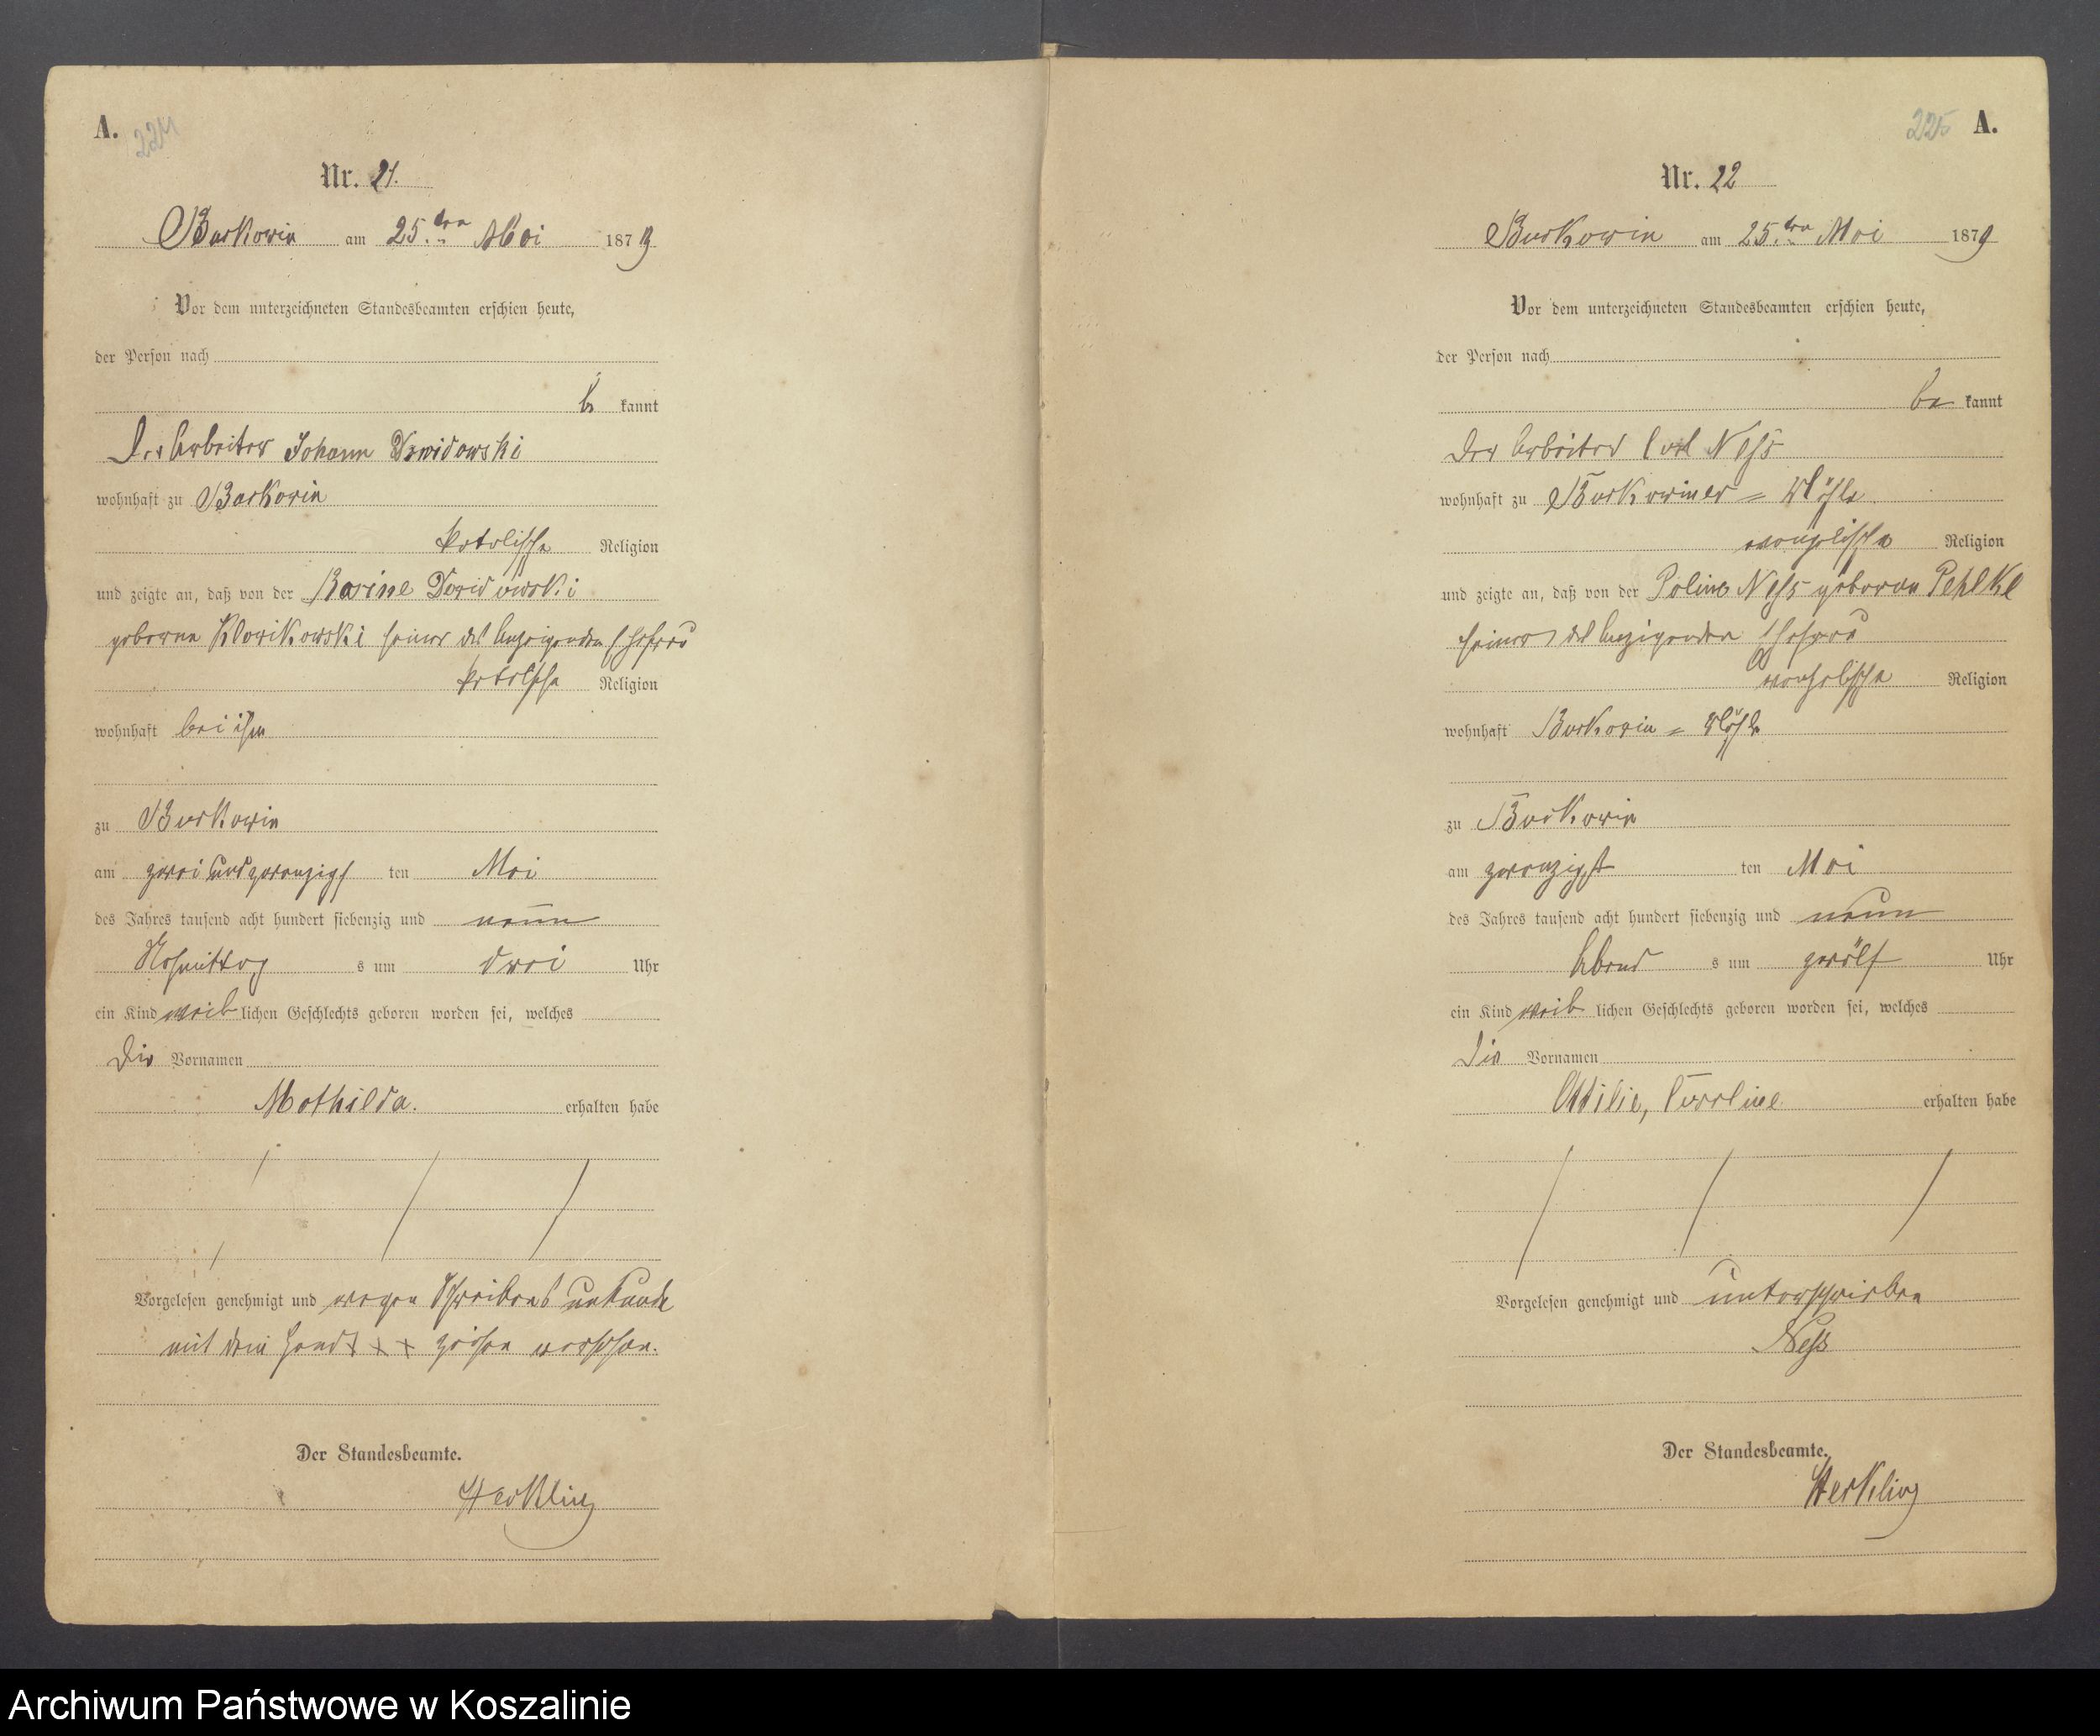 A. 224
Nr. 21.
Barkowin am 25. ten Mai 1879
Vor dem unterzeichneten Standesbeamten erschien heute,
der Person nach
be kannt
Der Arbeiter Johann Dawidowski
wohnhaft zu Barkowin
katolische Religion
und zeigte an, daß von der Dawidowski
geborene seiner des Anzeigenden Ehefrau
katolische Religion
wohnhaft bei ihm
zu Barkowin
am zwei und zwanzigs ten Mai
des Jahres tausend acht hundert siebenzig und neun
Nachmittag s um drei Uhr
ein Kind weib lichen Geschlechts geboren worden sei, welches
die Vornamen
Mathilda. erhalten habe
Vorgelesen genehmigt und wegen Schreibens unkunde
mit drei Hand x x x versehen.
Der Standesbeamte.
Herkling
225 A.
Nr. 22
Barkowin am 25. ten Mai 1879
Vor dem unterzeichneten Standesbeamten erschien heute,
der Person nach
be kannt
Der Arbeiter Carl Neß
wohnhaft zu Barkowiner =
evangelische Religion
und zeigte an, daß von der Poline Neß geborene Pehlke
seiner des Anzeigenden Ehefrau
evangelische Religion
wohnhaft Barkowin =
zu Barkowin
am zwanzigst ten Mai
des Jahres tausend acht hundert siebenzig und neun
Abend s um zwölf Uhr
ein Kind weib lichen Geschlechts geboren worden sei, welches
die Vornamen
Ottilie, Caroline erhalten habe
Vorgelesen genehmigt und unterschrieben
Neß
Der Standesbeamte.
Herkling
Archiwum Państwowe w Koszalinie